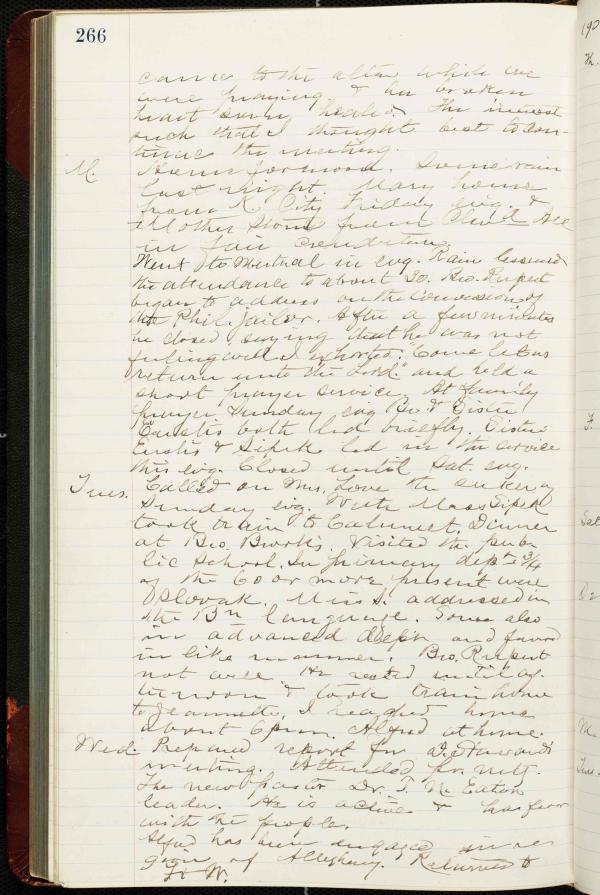 266
came to the altar while we
were praying & an broken
heart surely healed. The interest
such that I thought best to con-
tinue the meeting.
M. Home forenoon. Some rain
last night. Mary home
from K. City Friday evg. &
Mother Stone from Clev'd All
in fair condition.
Went to Mutual in evg. Rain lessened
the attendance to about 30. Bro. Rupert
began to address on the conversion of
the Phil. jailor. After a few minutes
he closed saying that he was not
feeling well. I exhorted: "Come let us
return unto the Lord." and held a
short prayer service. At family
prayer Sunday evg Bro. & Sister
Eurslis both led briefly. Sister
Eurslis & Sipek led in the service
this evg. Closed until Sat. evg.
Tues. Called on Mrs. Love the seeker of
Sunday evg. With Miss Sipek
took train to Calumet. Dinner
at Bro. Bwork's. Visited the pub-
lic School. In primary dept. 3/4
of the 60 or more present were
Slovak. Miss S. addressed in
the Bn language. Some also
in advanced dept. and favor
in like manner. Bro. Rupert
not well. He rested until af-
ternoon & took train home
to Jeannette. I reached home
about 6 p.m. Alfred at home.
Wed. Prepared report for D. Steward's
meeting. Attended pr. mtg.
The new pastor Dr. T. N. Eaton
leader. He is active & has favor
with the people.
Alfred has been engaged in
of Allegheny. Returned to
Ft. W.
190
Th.
F.
Sat
M.
Tues.